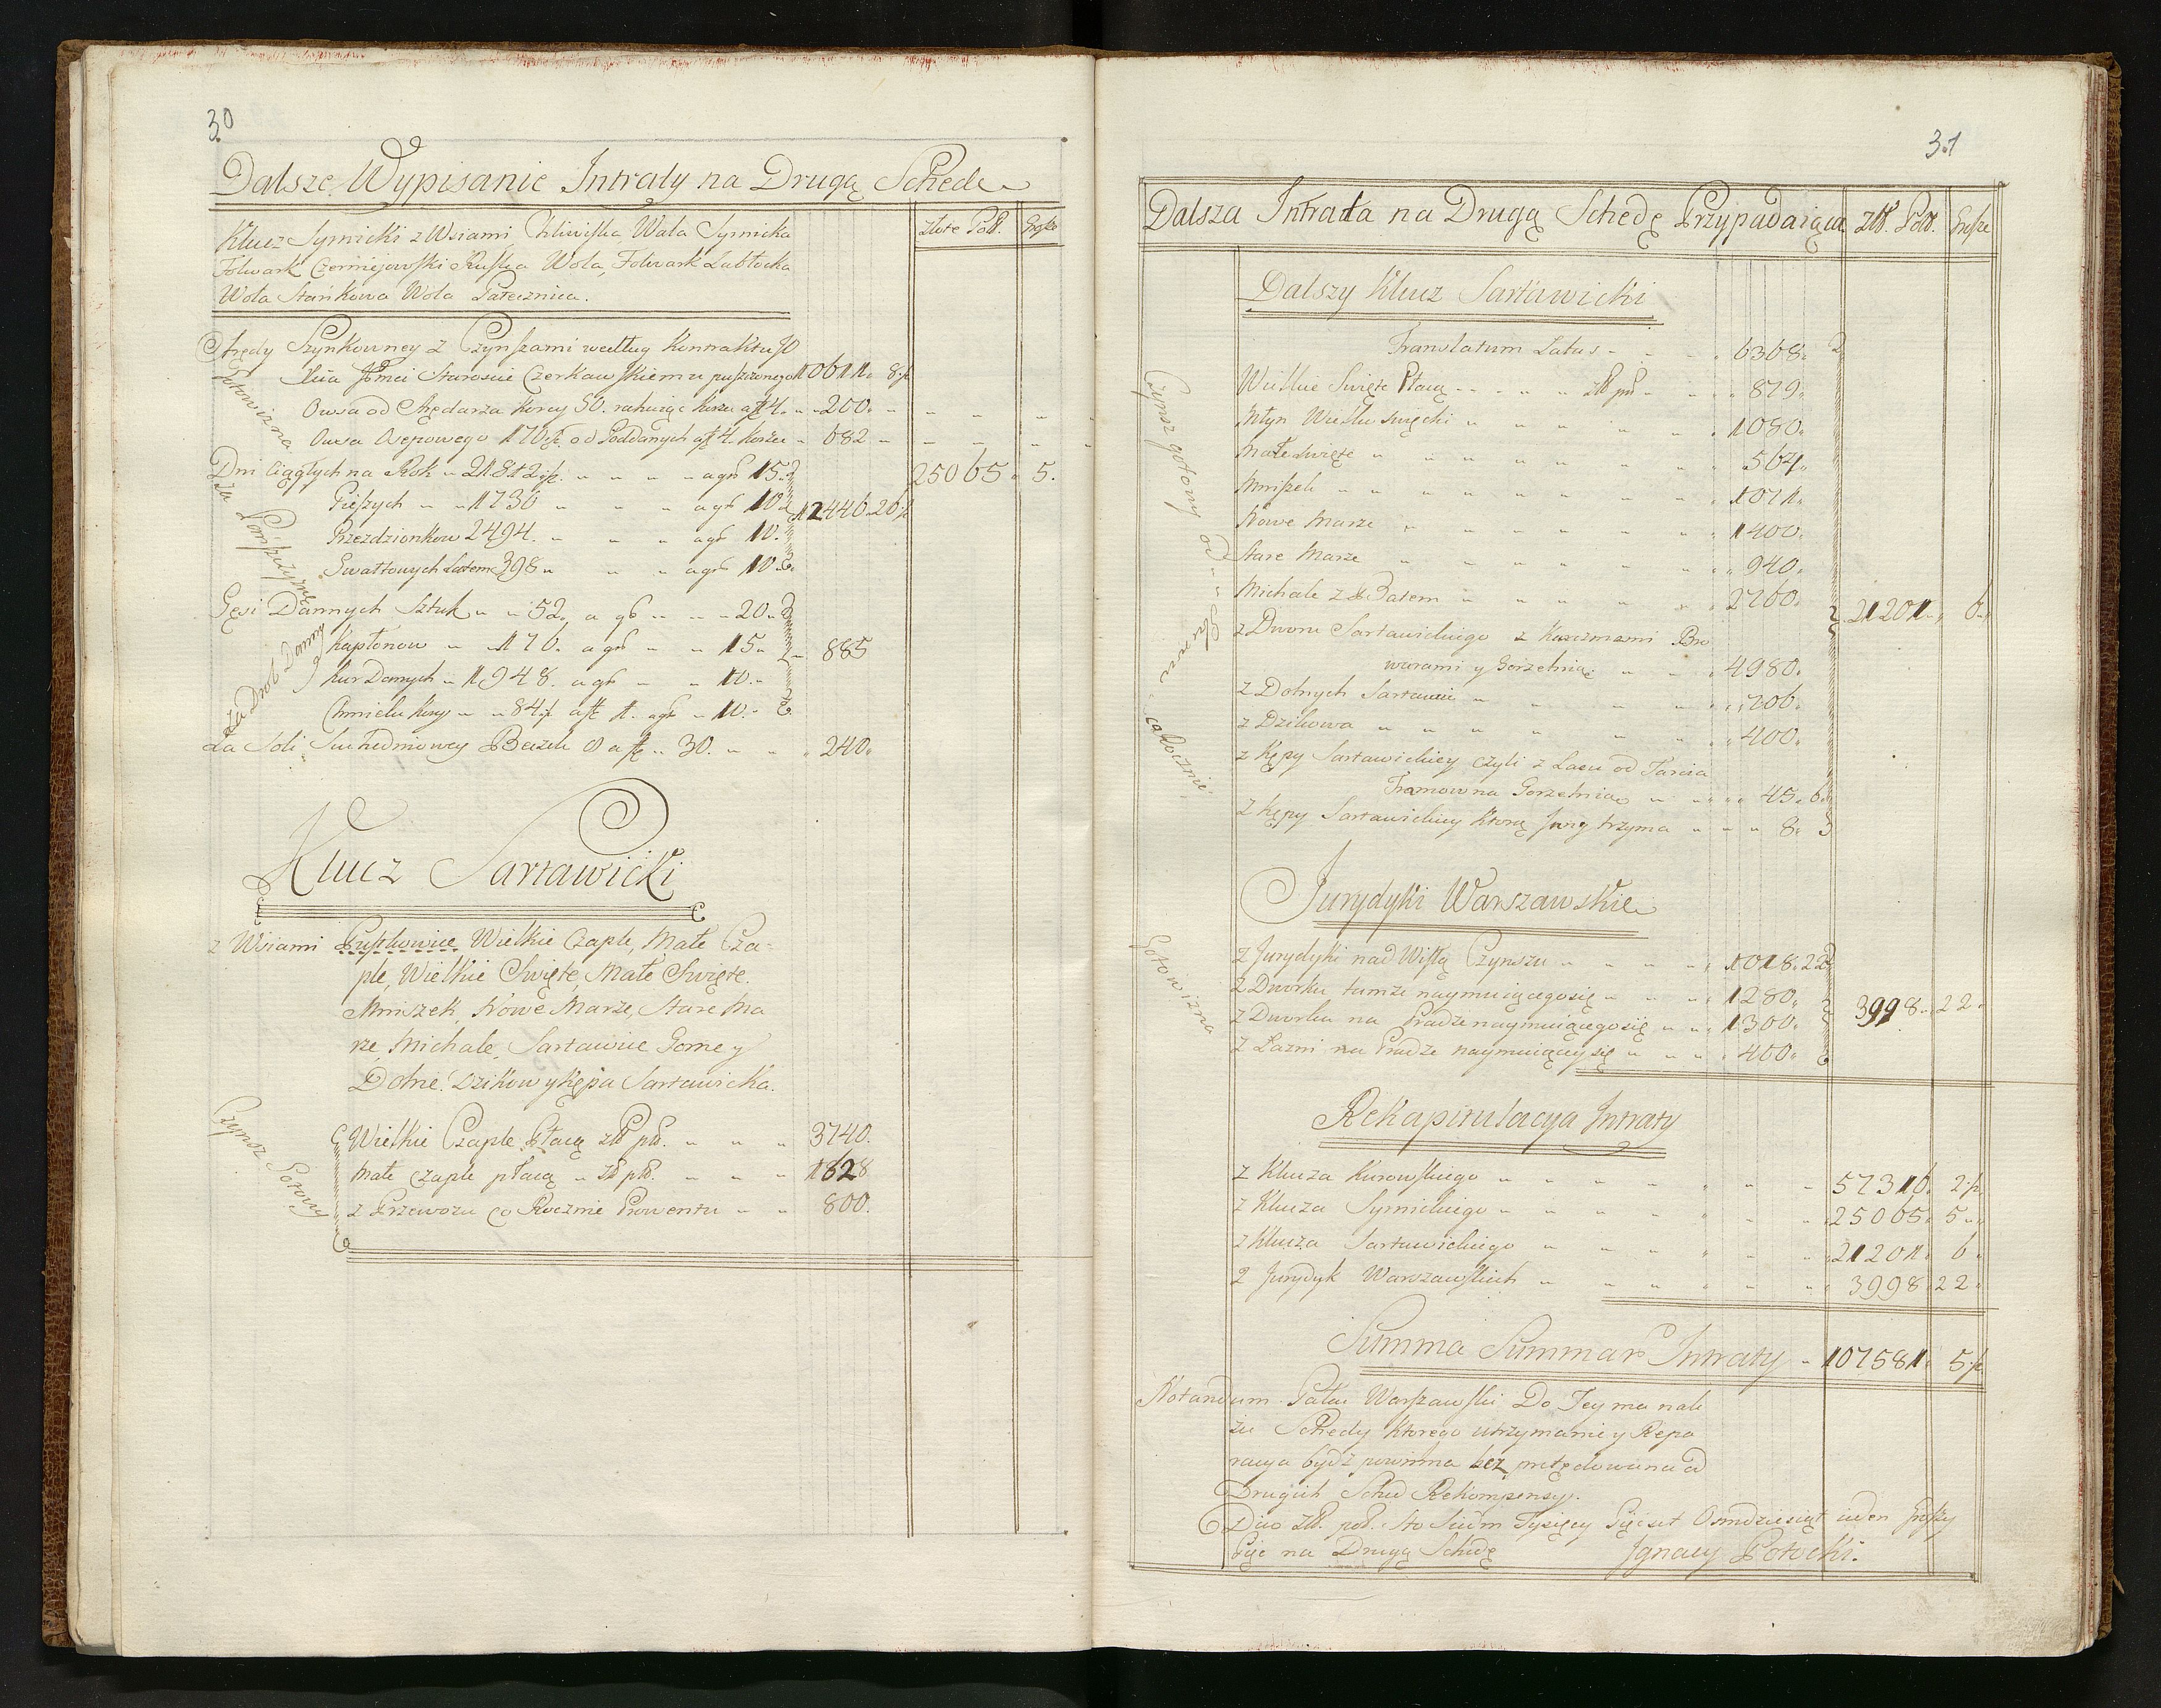 30
Dalsze Wypisanie Intraty na Drugą Schede
Złote Pol. Grosze
Klucz Syrnicki z Wsiami, Chliwiska, Wola Syrnicka
Folwark Czerniejowski Ruska Wola, Folwark Lubłocka
Wola Stańkowa Wola Pałecznica.
Arędy Szynkowney z Czynszami według Kontraktu JO
Xcia Jmci Staroście Czerkawskiemu puszczonego 10611. 8.½
Owsa od Arędarza Korcy 50. rachuiąc Korzec a fl 4. 200.
Owsa Osepowego 170½ od Poddanych a fl 4. Korzec 682
Gotowizna
Dni Ciągłych na Rok 218+2½ a gr 15. 25065. 5.
Pieszych 1736 a gr 10 12446. 20½
Przezdzionkow 2494. a gr 10.
Gwałtowych Latem 398 a gr 10.
Za Pańszczyznę
Gęsi Dannych Sztuk 52. a gr 20.
Kapłonow 176. a gr 15. 885
Kur Dannych 1948. a gr 10.
Chmielu Korcy 84½ a fl 1. a gr 10.
Za Drób Danny
Za Soli Suchedniowey Beczek 8 a fl 30. 240.
Klucz Sartawicki
z Wsiami Puszkowice, Wielkie Czaple, Małe Cza=
ple, Wielkie Swięte, Małe Swięte.
Mniszek, Nowe Marze, Stare Ma
rze, Michale, Sartawice Gorne y
Dolne. Dzikow y Kępa Sartawicka.
Czynsz Gotowy
Wielkie Czaple Płacą zł pł. 3740.
Małe Czaple płacą zł pł. 1828
z Przewozu co Rocznie Prowentu 800.
31
Dalsza Intrata na Drugą Schedę Przypadaiąca Zło. Pols. Grosze
Dalszy Klucz Sartawicki
Translatum Latus 6368.
Wielkie Swięte Płacą zł pol 879.
Młyn Wielko swięcki 1080.
Małe swięte 564.
Mniszek 1071.
Nowe Marze 1400.
Stare Marze 940.
Michale z Batem 2260. 21201. 6.
z Dworu Sartawickiego z Karczmami Bro
warami y Gorzelnią 4980.
z Dolnych Sartawic 1206.
z Dzikowa 400.
z Kępy Sartawickiey czyli z Lasu od Tarcia
Tramow na Gorzelnią 45. 6.
z Kępy Sartawickiey Ktorą Jung trzyma 8.
Czynsz gotowy od
corocznie
Jurydyki Warszawskie
z Jurydyki nad Wisłą Czynszu 1018. 22
z Dworku tamże naymuiącego się 1280.
z Dworku na Pradze naymuiącego się 1300. 3998. 22.
z Łazni na Pradze naymuiącey się 400.
Gotowizna
Rekapitulacya Intraty
z Klucza Kurowskiego 57316. 2½
z Klucza Syrnickiego 25065. 5.
z Klucza Sartawickiego 21201. 6.
z Jurydyk Warszawskich 3998. 22.
Summa Summar Intraty 107581. 5½
Notandum. Pałac Warszawski Do Tey ma nale
żeć Schedy Ktorego utrzymanie y Repa
racya bydź powinna bez pretędowania od
Drugich Sched Rekompensy.
Dico Zł. pol. Sto Siedm Tysięcy Pięćset Osmdziesiąt ieden Groszy
Pięć na Drugą Schedę Ignacy Potocki.